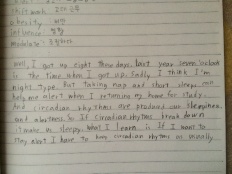 obesity : 비만
Well, I got up eight these days. Last year seven o'clock
is the time when I got up. Sadly I think I'm
night type. But taking nap and short sleeps can
help me alert when I returning my home for study.
And circadian rhythms are product our sleepiness
and alertness. So if circadian rhythms break down
it make us sleepy. What I learn is if I want to
stay alert I have to keep circadian rhythms as usually.